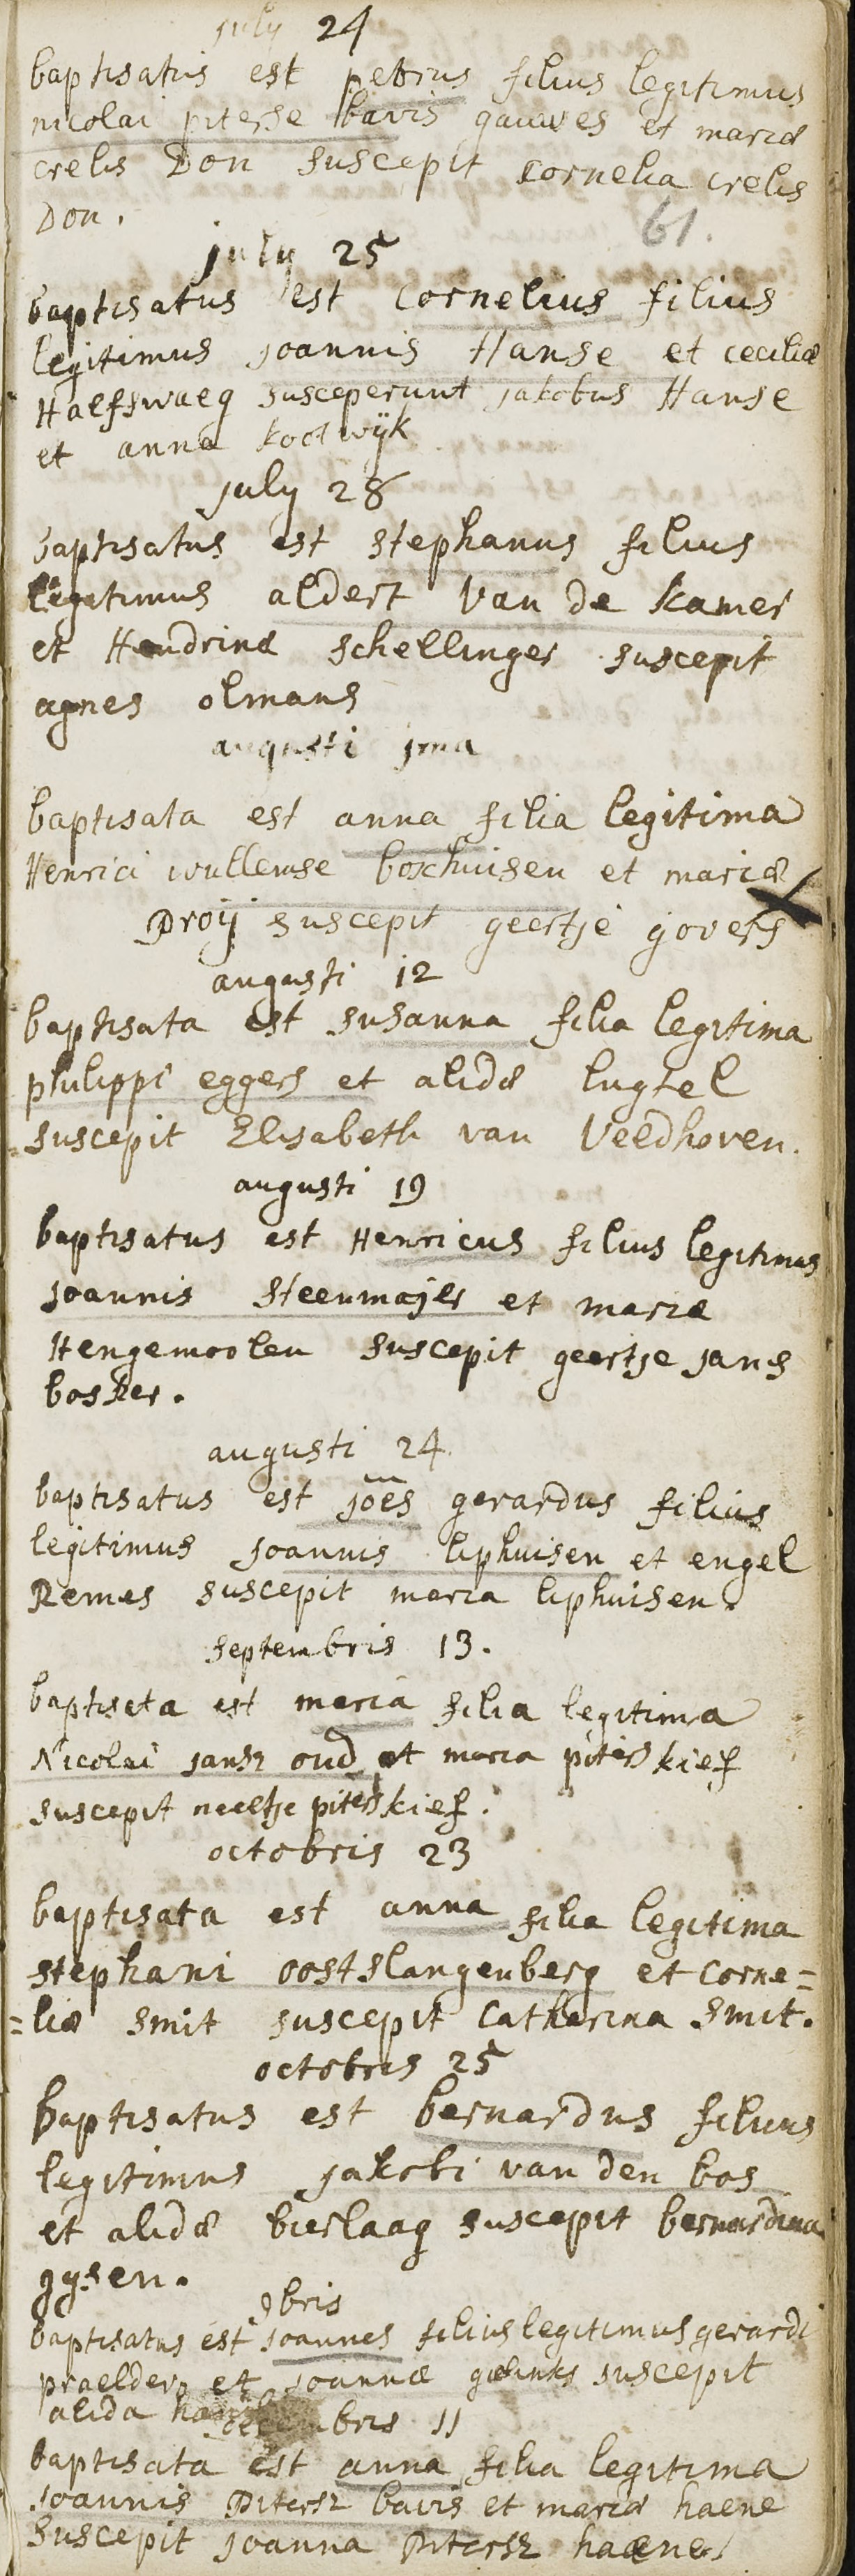 july 24
baptisatus est petrus filius legitimus
nicolai piterse bavis gauwes et mariæ
crelis Don suscepit cornelia crelis
Don.
61.
july 25
baptisatus est cornelius filius
legitimus joannis Hanse et ceciliæ
Halfswaeg susceperunt jakobus Hanse
et anna kootwijk
july 28
baptisatus est stephanus filius
legitimus aldert van de kamer
et Hendrinæ schellinger suscepit
agnes olmans
augusti 1ma
baptisata est anna filia legitima
Henrici willemse boschuisen et mariæ
Droij suscepit geertje govers
augusti 12
baptisata est susanna filia legitima
philippi eggers et alidæ lugtel
suscepit Elisabeth van Veldhoven.
augusti 19
baptisatus est Henricus filius legitimus
joannis steenmajer et mariæ
Hengemoolen suscepit geertje jans
bosker.
augusti 24
baptisatus est joes gerardus filius
legitimus joannis liphuisen et engel
Remes suscepit maria liphuisen.
septembris 13.
baptisata est maria filia legitima
Nicolai jansz oud et maria piters kief
suscepit neeltje piters kief.
octobris 23
baptisata est anna filia legitima
stephani oostslangenberg et corne=
=liæ smit suscepit Catharina smit.
octobris 25
baptisatus est bernardus filius
legitimus jakobi van den bos
et alidæ bierlaag suscepit bernardina
gysen.
9bris
baptisatus est joannes filius legitimus gerardi
praelder et joannæ gielinks suscepit
alida
decembris 11
baptisata est anna filia legitima
joannis Pitersz bavis et mariæ haene
suscepit joanna Pitersz haene